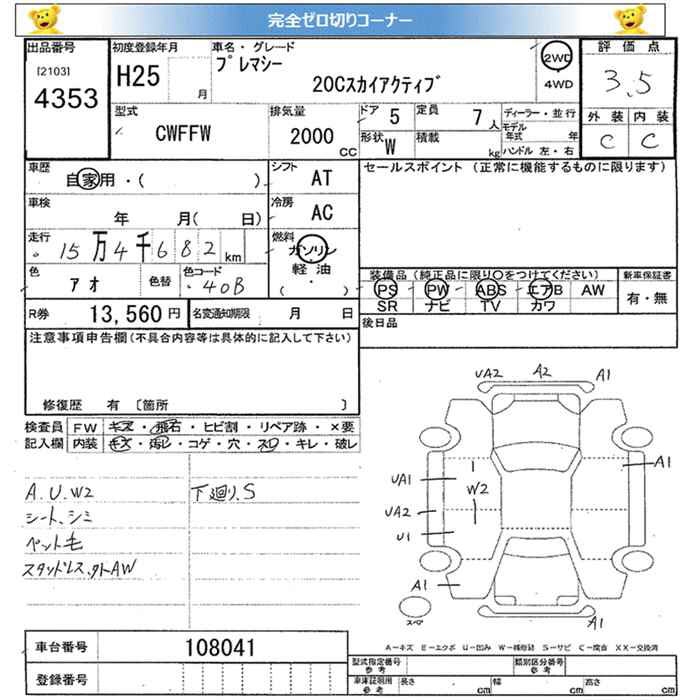 完全ゼロ切りコーナー
出品番号 初度登録年月 車名・グレード 評価点
[2103] 4353
H25 月
プレマシー
20Cスカイアクティブ
2WD
4WD
3.5
外装 内装
C C
型式 CWFFW
排気量 2000 CC
ドア 5 定員 7人
形状 W 積載 kg
ディーラー・並行
モデル年式 年
ハンドル 左・右
車歴 自家用・( )
シフト AT
セールスポイント (正常に機能するものに限ります)
車検 年 月( 日)
冷房 AC
走行 15万4千682km
燃料 ガソリン
軽油
( ・ )
色 アオ 色替 色コード 40B
装備品 (純正品に限り○をつけてください) 新車保証書
PS PW ABS エアB AW
SR ナビ TV カワ
有・無
R券 13,560円 名変通知期限 月 日
後日品
注意事項申告欄(不具合内容等は具体的に記入して下さい)
修復歴 有 [箇所 ]
検査員 FW キズ・飛石・ヒビ割・リペア跡・×要
記入欄 内装 キズ・汚レ・コゲ・穴・スレ・キレ・破レ
A.U.W2 下廻り.S
シート.シミ
ペット毛
スタッドレス.外AW
UA2 A2 A1
A1
UA1
W2
UA2
U1
A1
A1
スペア
A-キズ E-エクボ U-凹み W-補修跡 S-サビ C-腐食 XX-交換済
車台番号 108041
登録番号
型式指定番号 参考 類別区分番号 参考
車庫証明用 参考 長さ cm 幅 cm 高さ cm